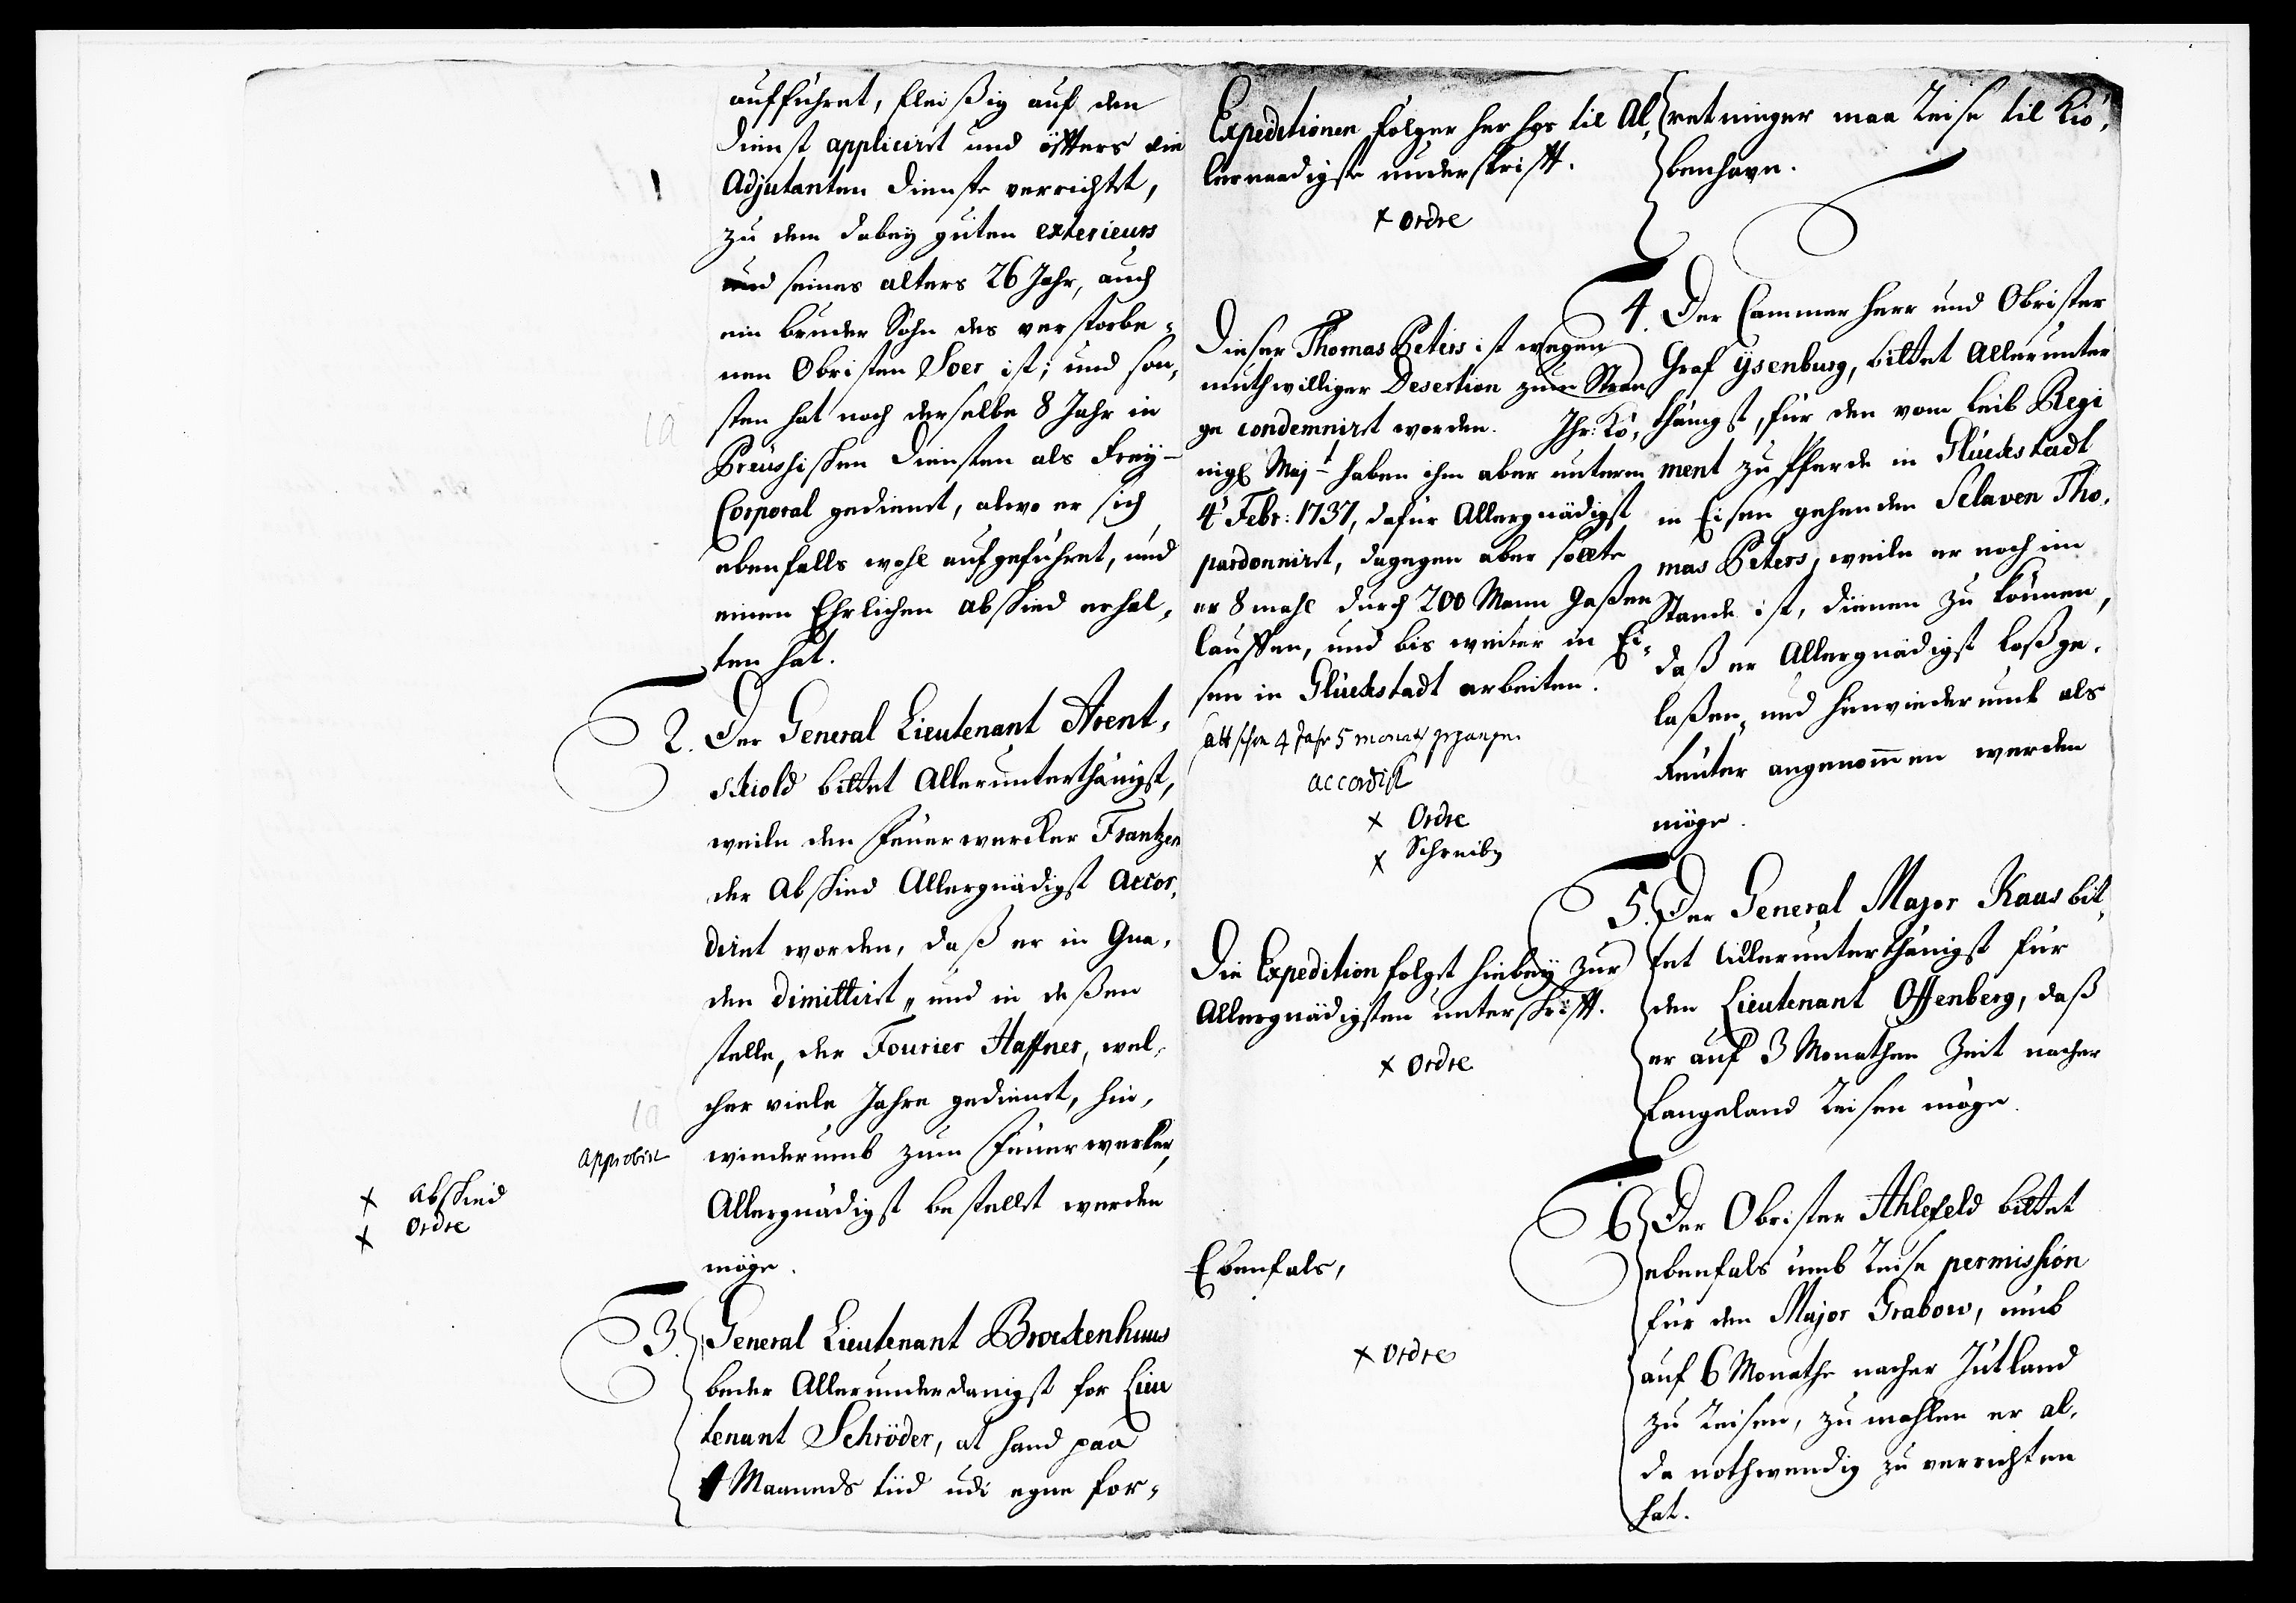 aufführet, fleißig auf den
Dienst appliciret und öffters die
Adjutanten Dienste verrichtet,
zu dem dabey guten exterieurs
und seines alters 26 Jahr, auch
ein bruder Sohn des verstorbe-
nen Obristen Soer ist; und son,
sten hat noch derselbe 8 Jahr in
Preussischen Diensten als Frey-
Corporal gedienet, alwo er sich
ebenfalls wohl aufgeführet, und
einen Ehrlichen abschied erhal,
ten hat.
2. Der General Lieutenant Arent,
skiold bittet Allerunterthänigst,
weile den Feuerwercker Frantzen
der Abschied Allergnädigst accor,
diret worden, daß er in Gna,
den dimittirt, und in deßen
stelle, der Fourier Haffner, wel,
cher viele Jahre gedienet, hin,
wiederumb zum Feuerwerker,
Allergnädigst bestellet werden
möge.
approbirt
x abschied
x Ordre
3. General Lieutenant Brockenhuus
beder Allerunderdanigst for Lieu
tenant Schröder, at hand paa
4 Maaneds tiid udi egne for-
Expeditionen følger her hos til Al,
lernaadigste underskrifft.
x Ordre
retninger maa Reise til Kiö,
benhavn.
Dieser Thomas Peters ist wegen
muthwilliger Desertion zum Stran
ge condemniret worden. Ihr: Kö,
nigl Majt haben ihm aber unterm
4t Febr: 1737, dafür Allergnädigst
pardonniret, dagegen aber sollte
er 8 mahl durch 200 Mann Gaßen
lauffen, und bis weiter in Ei,
sen in Glückstadt arbeiten.
att schon 4 Jahr 5 monath gegangen
accordirt
x Ordre
x Schreiben
4. Der Cammer Herr und Obrister
Graf Ysenburg, bittet Allerunter
thänigst, für den vom Leib Regi
ment zu Pferde in Glückstadt
in Eisen gehenden Sclaven Tho,
mas Peters, weile er noch im
Stande ist, dienen zu können,
daß er Allergnädigst loßge,
laßen, und hinwiederumb als
Reuter angenommen werden
möge.
Die Expedition folget hiebey zur
Allergnädigsten unterschrifft.
x Ordre
5. Der General Major Kaas bit,
tet Allerunterthänigst für
den Lieutenant Offenberg, daß
er auf 3 Monathen Zeit nacher
Langeland Reisen möge.
Ebenfals,
x Ordre
6. Der Obrister Ahlefeld bittet
ebenfals umb Reise permission
für den Major Grabow, umb
auf 6 Monathe nacher Jutland
zu Reisen, zumahlen er al,
da nothwendig zu verrichten
hat.